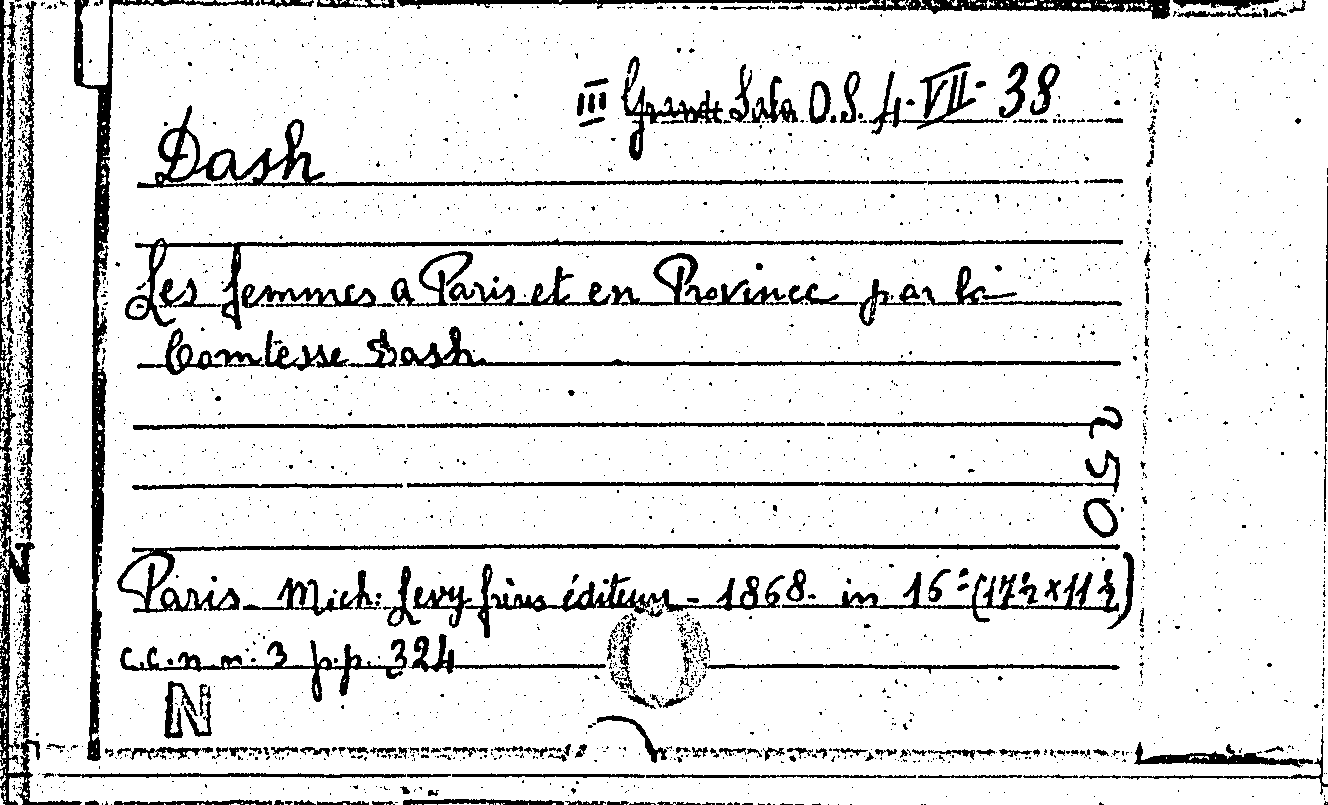 III Grande Sala O.S. 4-VII-38
Dash
Les femmes a Paris et en Province par la
Comtesse Dash
250
Paris - Mich. Levy frères éditeurs - 1868. in 16º (17½ x 11½)
c.c.n.n. 3 p.p. 324
N